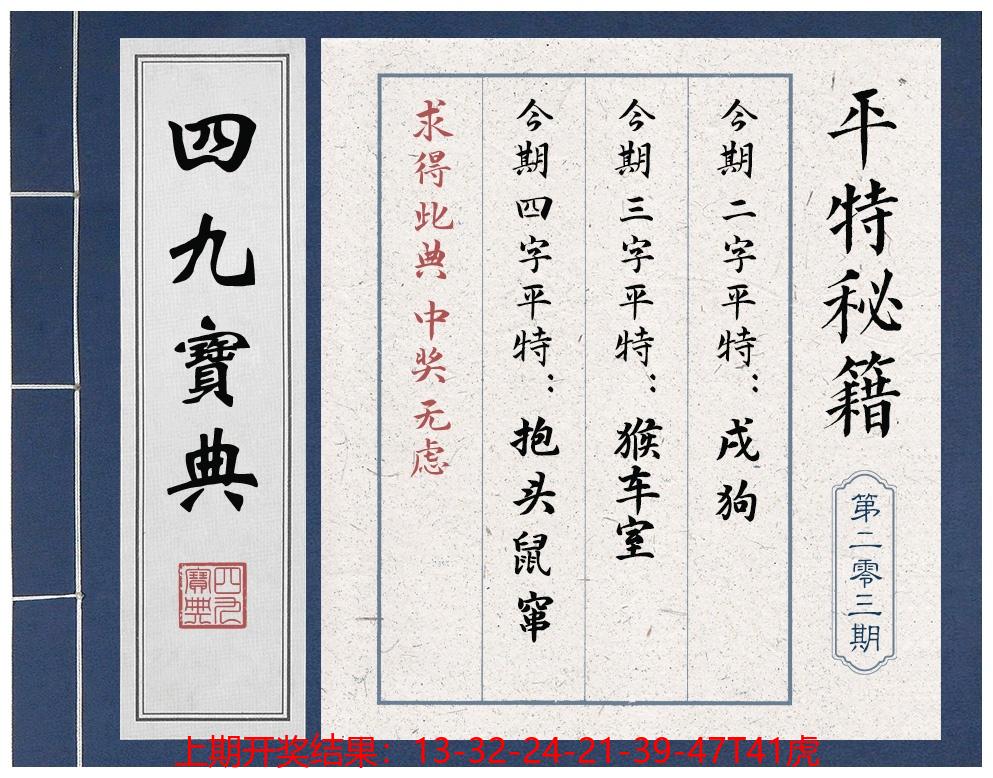 平特秘籍
第二零三期
今期二字平特：戌狗
今期三字平特：猴车室
今期四字平特：抱头鼠窜
求得此典 中奖无虑
四九寶典
四九寶典
上期开奖结果：13-32-24-21-39-47T41虎